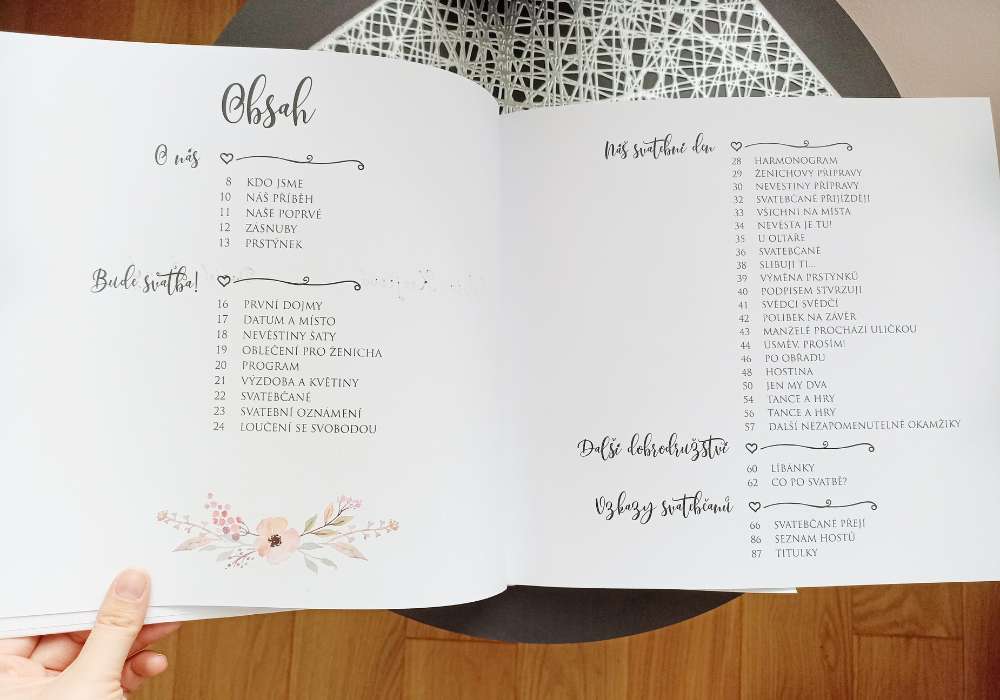 Obsah
O nás
8 KDO JSME
10 NÁŠ PŘÍBĚH
11 NAŠE POPRVÉ
12 ZÁSNUBY
13 PRSTÝNEK
Bude svatba!
16 PRVNÍ DOJMY
17 DATUM A MÍSTO
18 NEVĚSTINY ŠATY
19 OBLEČENÍ PRO ŽENICHA
20 PROGRAM
21 VÝZDOBA A KVĚTINY
22 SVATEBČANÉ
23 SVATEBNÍ OZNÁMENÍ
24 LOUČENÍ SE SVOBODOU
Náš svatební den
28 HARMONOGRAM
29 ŽENICHOVY PŘÍPRAVY
30 NEVĚSTINY PŘÍPRAVY
32 SVATEBČANÉ PŘIJÍŽDĚJÍ
33 VŠICHNI NA MÍSTA
34 NEVĚSTA JE TU!
35 U OLTÁŘE
36 SVATEBČANÉ
38 SLIBUJI TI...
39 VÝMĚNA PRSTÝNKŮ
40 PODPISEM STVRZUJI
41 SVĚDCI SVĚDČÍ
42 POLIBEK NA ZÁVĚR
43 MANŽELÉ PROCHÁZÍ ULIČKOU
44 ÚSMĚV, PROSÍM!
46 PO OBŘADU
48 HOSTINA
50 JEN MY DVA
54 TANCE A HRY
56 TANCE A HRY
57 DALŠÍ NEZAPOMENUTELNÉ OKAMŽIKY
Další dobrodružství
60 LÍBÁNKY
62 CO PO SVATBĚ?
Vzkazy svatebčanů
66 SVATEBČANÉ PŘEJÍ
86 SEZNAM HOSTŮ
87 TITULKY